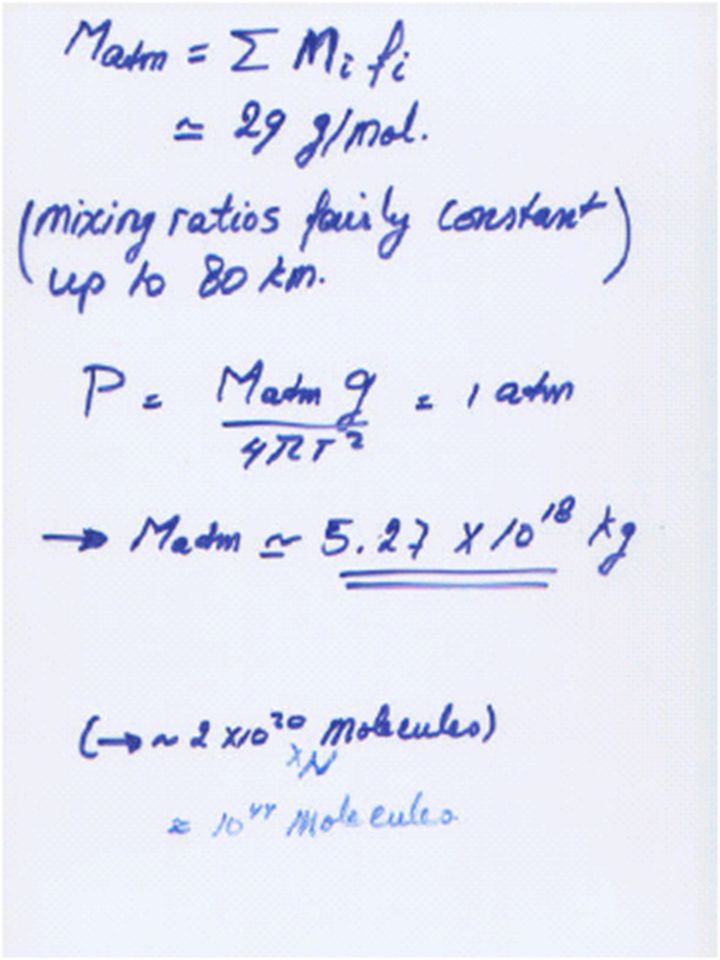 Matm = Σ Mi fi
≃ 29 g/mol.
(mixing ratios fairly constant
up to 80 km.)
P = Matm g / 4πr² = 1 atm
→ Matm ≃ 5.27 × 10¹⁸ kg
(→ ~ 2 ×10²⁰ molecules)
×N
≈ 10⁴⁴ Molecules